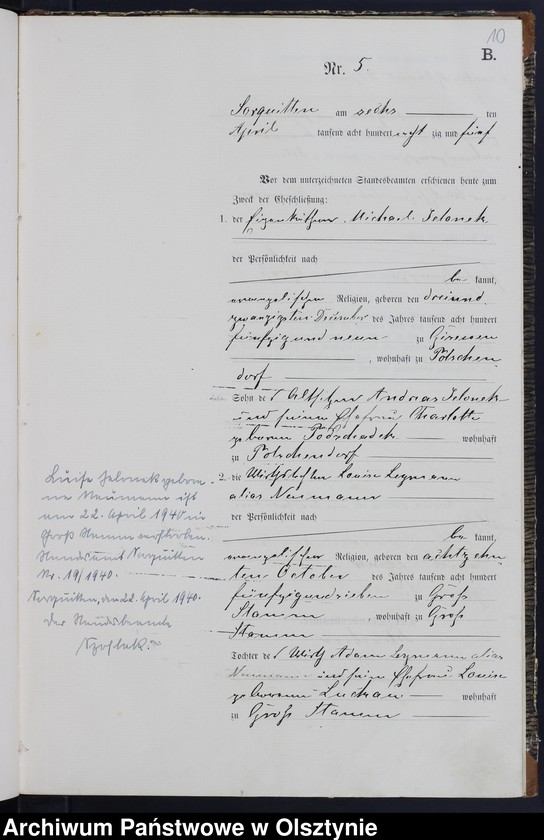 10
B.
Nr. 5.
Sorquitten am sechs ten
April tausend acht hundert acht zig und fünf
Vor dem unterzeichneten Standesbeamten erschienen heute zum
Zweck der Eheschließung:
1. der Eigenkäthner Michael Jelonek
der Persönlichkeit nach
be kannt,
evangelischer Religion, geboren den dreiund
zwanzigsten December des Jahres tausend acht hundert
fünfzigundneun zu Giesewen
, wohnhaft zu Pötschen
dorf
Sohn des Altsitzer Andreas Jelonek
und seiner Ehefrau Charlotte
geborene wohnhaft
zu Pötschendorf
2. die Wirthstochter Louise
alias Neumann
der Persönlichkeit nach
be kannt,
evangelischer Religion, geboren den achtzehn
ten October des Jahres tausend acht hundert
fünfzigundsieben zu Groß
Stamm , wohnhaft zu Groß
Stamm
Tochter des Wirth Adam alias
Neumann und seiner Ehefrau Louise
geborenen wohnhaft
zu Groß Stamm
Luise Jelonek gebore
ne Neumann ist
am 22. April 1940 in
Groß Stamm verstorben.
Standesamt Sorquitten
Nr. 19/1940.
Sorquitten, den 22. April 1940.
Der Standesbeamte
Archiwum Państwowe w Olsztynie